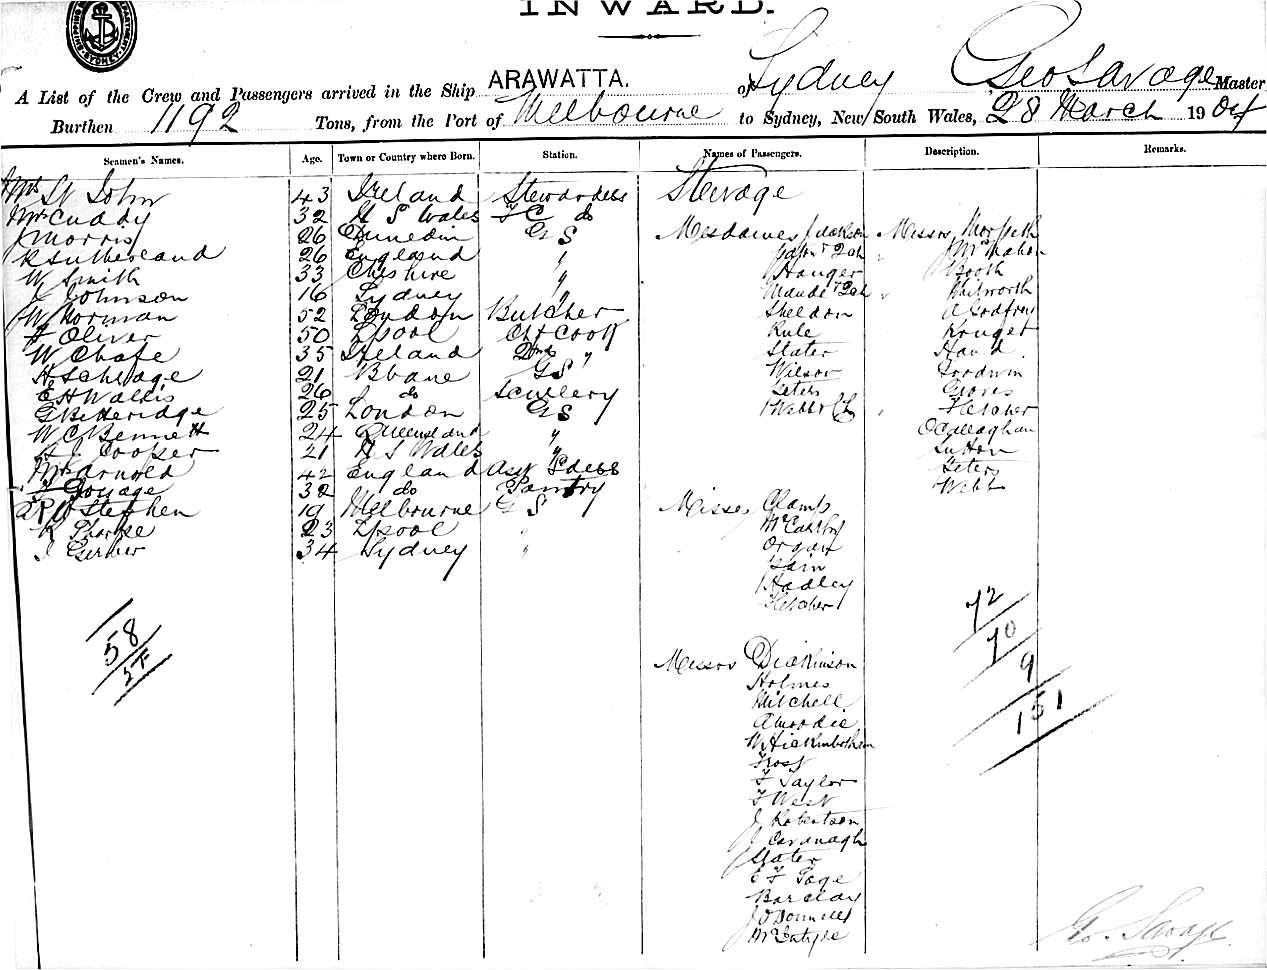 INWARD.
SHIPPING DEPARTMENT SYDNEY
A List of the Crew and Passengers arrived in the Ship ARAWATTA. of Sydney Geo Savage Master
Burthen 1192 Tons, from the Port of Melbourne to Sydney, New South Wales, 28 March 1904
Seamen's Names. Age. Town or Country where Born. Station. Names of Passengers. Description. Remarks.
Mrs St John 43 Ireland Stewardess Steerage
Mrs Cuddy 32 N S Wales F C do
J Morris 26 Dunedin G S Mesdames Jackson Messrs Morpeth
R Sutherland 26 England " McMahon
W Smith 33 Cheshire " Hanger Booth
J Johnson 16 Sydney " Maude Whitworth
W Norman 52 London Butcher Sheldon A Godfrey
F Oliver 50 Lpool Chf Cook Rule Kruger
W Chafe 35 Ireland 2nd " Slater Hand
H Schlage 21 Bbane G S Wilson Goodwin
E H Wallis 26 do Scullery Peters Groves
G Betteridge 25 London G S Webb Fletcher
W C Bennett 24 Queensland " O'Callaghan
A J Cooper 21 N S Wales " Sutton
Mrs Arnold 42 England Asst Sdess Peters
F Gossage 32 do Pantry Webb
W Stephen 19 Melbourne G S Misses Clamp
K Pharoe 23 Lpool " McCarthy
J Gerber 34 Sydney " Organ
Pain
Hadley
Fletcher
72
58 70
9
Messrs Dickinson
Holmes
Mitchell 151
A Moodie
W Hickinbotham
Frost
F Taylor
F West
J Robertson
J Cavanagh
J Slater
E F Page
Barclay
J O'Donnell
McIntyre
Geo. Savage